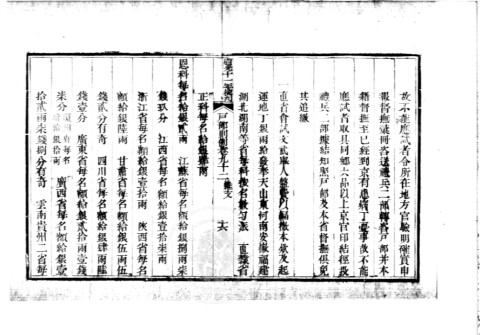 故不能應試者令所在地方官驗明實申
報督撫彙冊咨送禮兵二部轉咨戶部并本
籍督撫至已經到京有患病丁憂事故不能
應試者取具同鄉六品以上京官印結徑投
禮兵二部據結知照戶部及本省督撫俱免
其追繳
一直省會試文武舉人盤費
運地丁銀兩給發奉天山東河南安徽福建
湖北湖南等省每科按名數勻派 直隸省
戶部則例卷九十二 雜支 六
正科每名給銀肆兩
恩科每名給銀貳兩 江蘇省每名給銀捌兩柒
錢玖分 江西省每名給銀拾柒兩
浙江省每名額給銀壹拾兩 陝西省每名
額給銀陸兩 甘肅省每名額給銀伍兩伍
錢貳分有奇 四川省每名額給銀肆兩陸
錢壹分 廣東省每名額給銀貳拾兩壹錢
柒分 每名 廣西省每名額給銀壹
拾貳兩柒錢捌分有奇 雲南貴州二省每